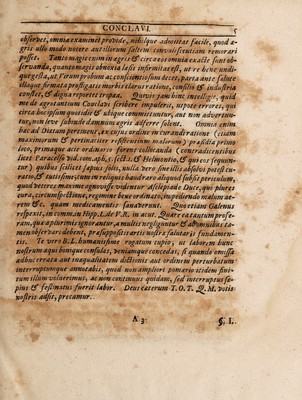 CONCLAVI. 5
observet, omnia examinet provide, nihilque admittat facile, quod æ-
gris ullo modo nocere aut illorum saltem convalescentiam remorari
posset. Tanto magis enim in ægris & circa eos omnia exacte sunt ob-
servanda, quanto magis obnoxia læsis infirmitas est, ut re bene undi-
que gesta, ut Virum probum ac conscientiosum decet, parta ante salute
illoque formata profligatis morbis clarus ratione, consiliis & industria
constet, & digna reportet propria. Quevis jam hinc intelligit, quid
me de ægrotantium Conclavi scribere impulerit, utpote errores, qui
circa hoc ipsum quotidie & ubique committuntur, aut non advertun-
tur, non vero subinde damnum ægris afferre solent. Omnia enim
hæc ad Diætam pertinent, ex cujus ordine in curandi ratione (etiam
maximorum & pertinaciter resistentium malorum) præsidia primo
loco, primaque acie ordinario forent collocanda (contradicentibus
licet Paracelso vid. com. aph. 5. sect. 1. & Helmontio, & qui eos sequun-
tur) quibus scilicet sæpius solis, nulla vero sine illis absolvi potest cu-
ratio. & tutissime etiam in reliquis laudatæ aliquod subsit periculum,
quod veteres maxime agnovisse videntur Asclepiade Duce, qui plures
cura, circumspectione, regimine hoc ordinato, impediendo malum au-
rem &c. quam medicamentis sanaverunt. Quo etiam Galenus
respexit, in comm. in Hipp. l. de V. R. in acut. Quare ea tantum profe-
ram, quæ a plurimis ignorantur, a multis negliguntur & ab omnibus ta-
men observari debent, præsupposito nostræ salutaris fundamen-
tis. Te vero B. L. humanissime rogatum cupio, ut laborem hunc
nostrum æqui bonique consulas, veniamque concedas, si quando omissa
adhuc creata aut inæqualitatem dictionis aut ordinem perturbatum
interruptumque annotabis, quod non ampliori pomario itidem fini-
tum illum voluerimus, ac non continuus quidam, sed interruptus sæ-
pius & festinatus fuerit labor. Deus cæterum T. O. T. Q. M. votis
nostris adsit, precamur.
A 3 §. I.